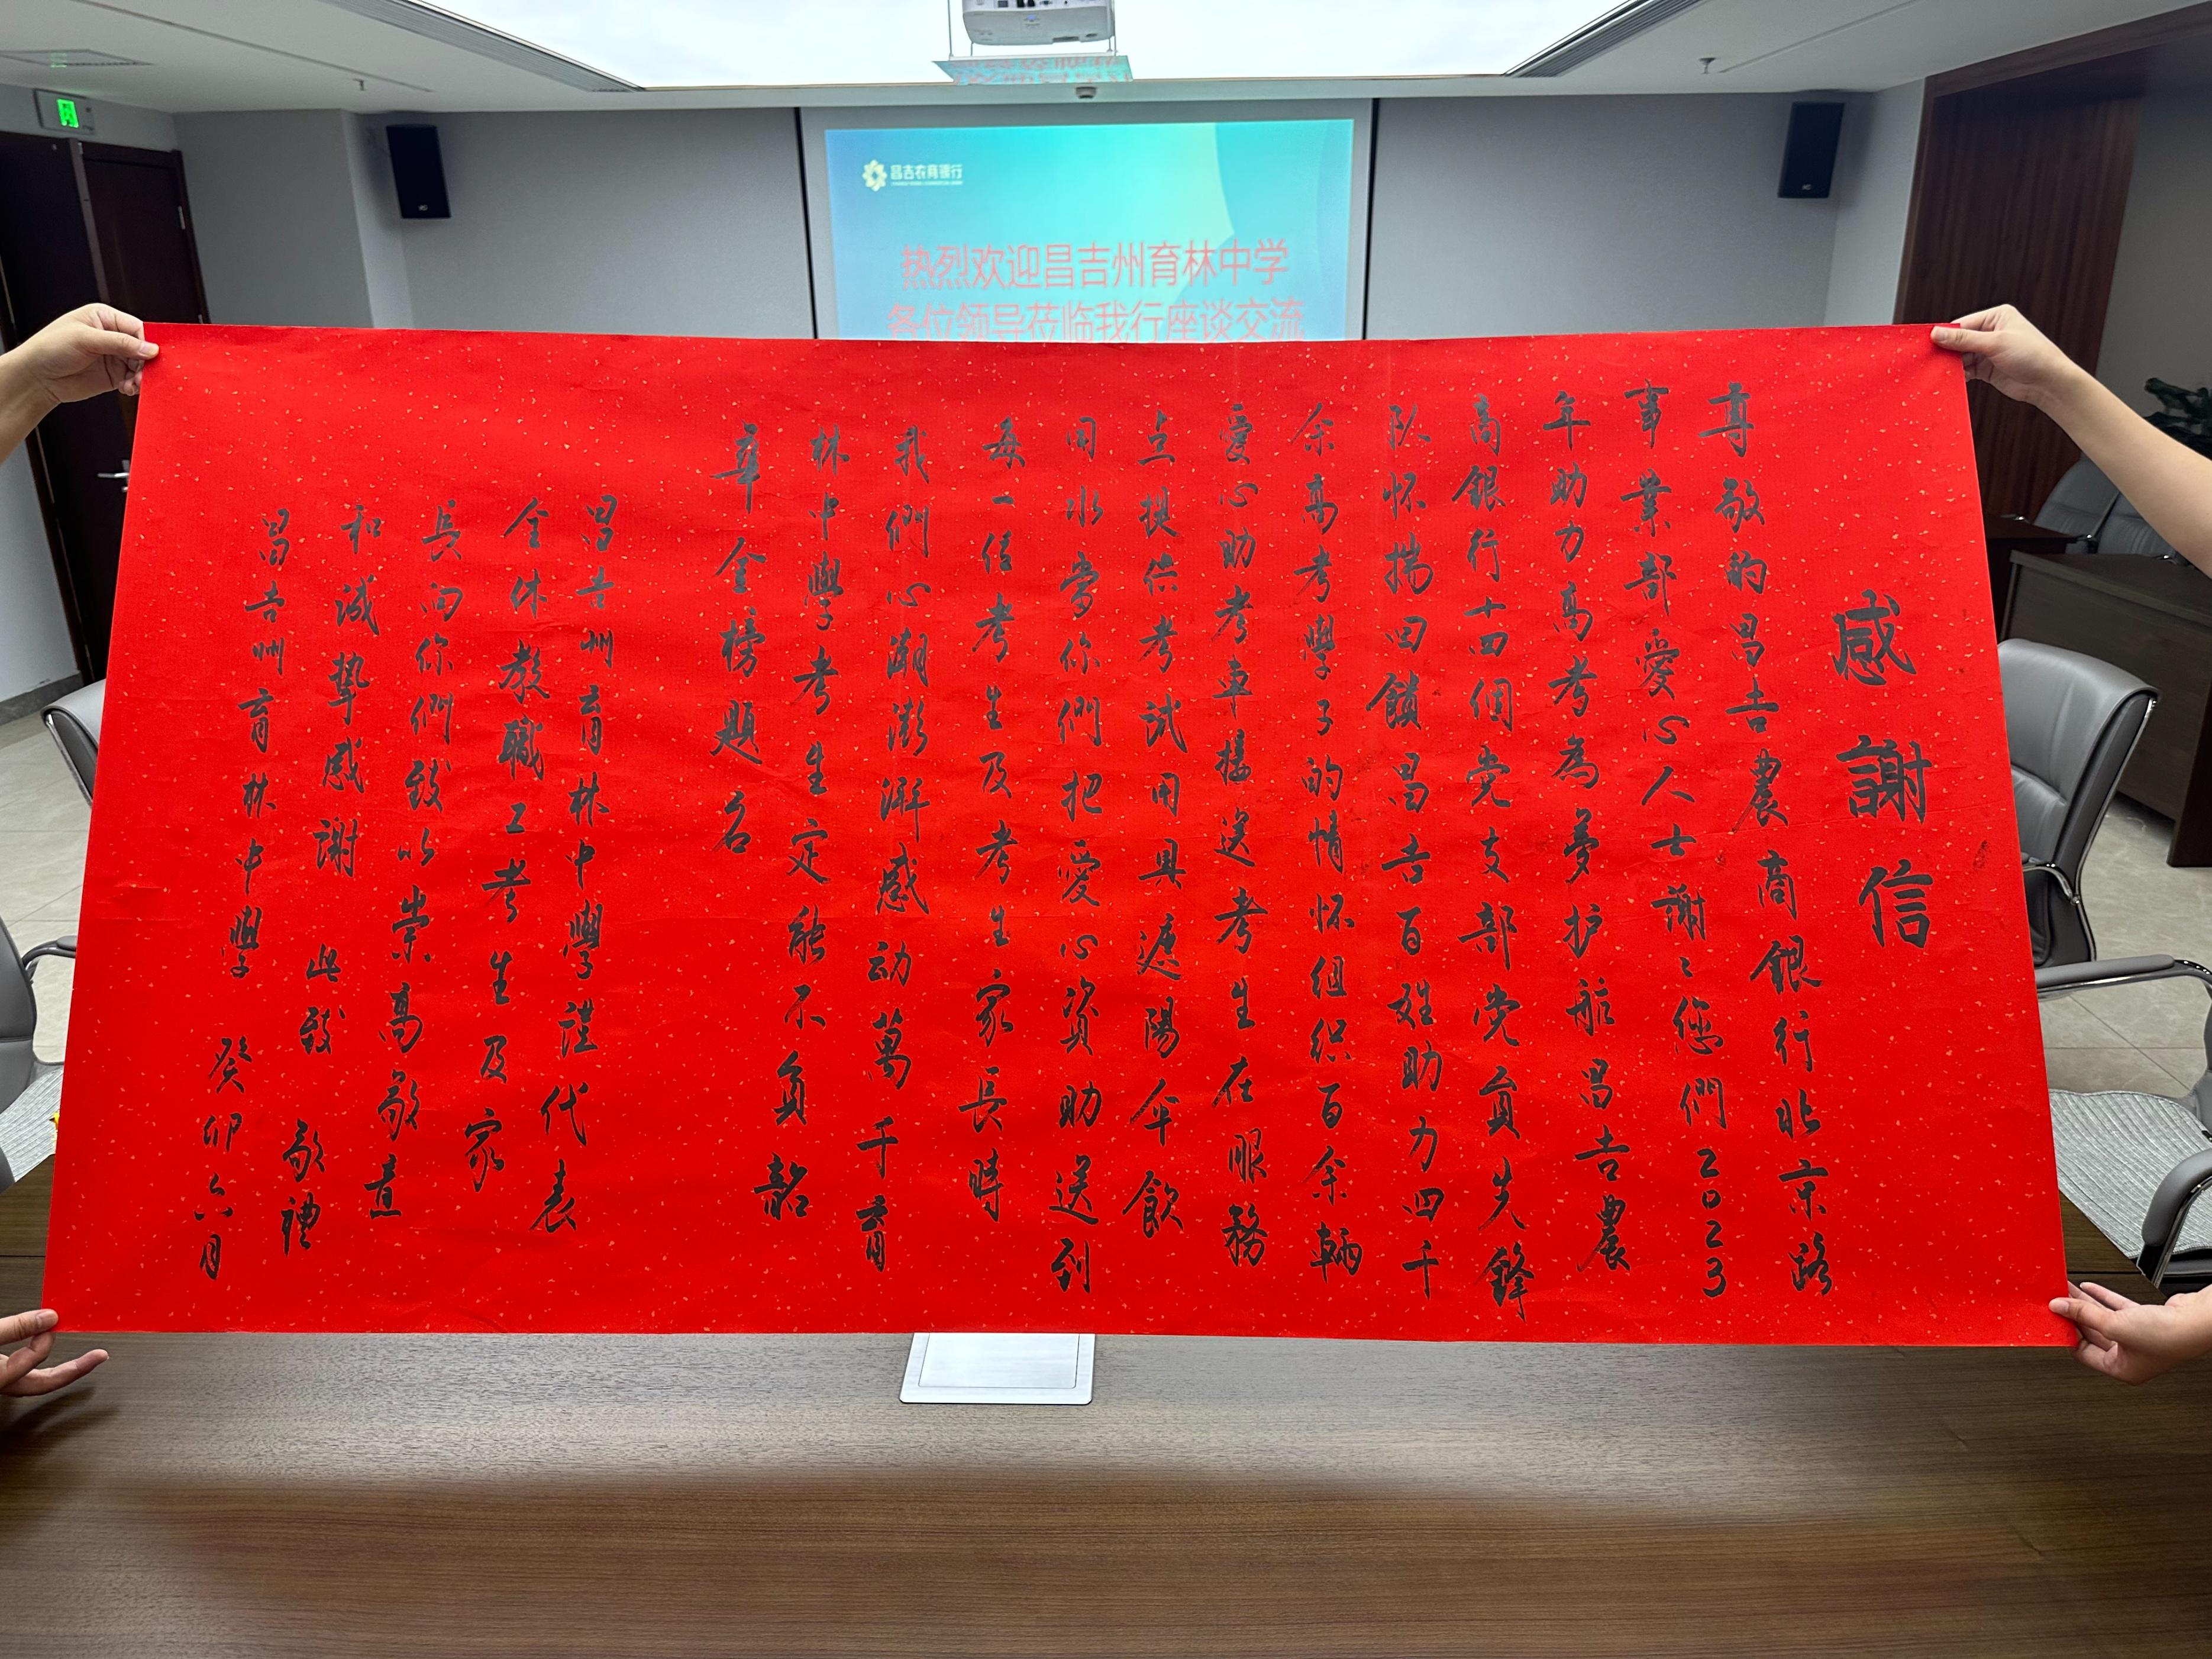 昌吉农商银行
热烈欢迎昌吉州育林中学
各位领导莅临我行座谈交流
感謝信
尊敬的昌吉農商銀行北京路
事業部愛心人士謝謝您們2023
年助力高考為夢护航昌吉農
商銀行十四個党支部党員先鋒
队怀揣回饋昌吉百姓助力四千
余高考學子的情怀组织百余輛
愛心助考車接送考生在服務
点提供考试用具遮陽伞飲
用水當你們把愛心資助送到
每一位考生及考生家長時
我們心潮澎湃感动萬千育
林中學考生定能不負韶
華金榜题名
昌吉州育林中學谨代表
全体教職工考生及家
長向你們致以崇高敬意
和诚挚感謝 此致 敬禮
昌吉州育林中學 癸卯六月